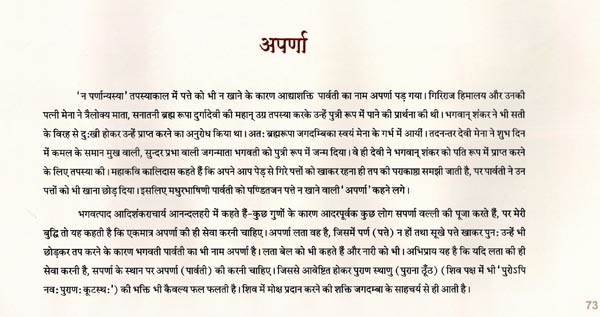 अपर्णा
‘न पर्णान्यस्या’ तपस्याकाल में पत्ते को भी न खाने के कारण आद्याशक्ति पार्वती का नाम अपर्णा पड़ गया। गिरिराज हिमालय और उनकी
पत्नी मेना ने त्रैलोक्य माता, सनातनी ब्रह्म रूपा दुर्गादेवी की महान् उग्र तपस्या करके उन्हें पुत्री रूप में पाने की प्रार्थना की थी। भगवान् शंकर ने भी सती
के विरह से दु:खी होकर उन्हें प्राप्त करने का अनुरोध किया था। अत: ब्रह्मरूपा जगदम्बिका स्वयं मेना के गर्भ में आयीं। तदनन्तर देवी मेना ने शुभ दिन
में कमल के समान मुख वाली, सुन्दर प्रभा वाली जगन्माता भगवती को पुत्री रूप में जन्म दिया। वे ही देवी ने भगवान् शंकर को पति रूप में प्राप्त करने
के लिए तपस्या की। महाकवि कालिदास कहते हैं कि अपने आप पेड़ से गिरे पत्तों को खाकर रहना ही तप की पराकाष्ठा समझी जाती है, पर पार्वती ने उन
पत्तों को भी खाना छोड़ दिया। इसलिए मधुरभाषिणी पार्वती को पण्डितजन पत्ते न खाने वाली ‘अपर्णा’ कहने लगे।
भगवत्पाद आदिशंकराचार्य आनन्दलहरी में कहते हैं-कुछ गुणों के कारण आदरपूर्वक कुछ लोग सपर्णा वल्ली की पूजा करते हैं, पर मेरी
बुद्धि तो यह कहती है कि एकमात्र अपर्णा की ही सेवा करनी चाहिए। अपर्णा लता वह है, जिसमें पर्ण (पत्ते) न हों तथा सूखे पत्ते खाकर पुन: उन्हें भी
छोड़कर तप करने के कारण भगवती पार्वती का भी नाम अपर्णा है। लता बेल को भी कहते हैं और नारी को भी। अभिप्राय यह है कि यदि लता की ही
सेवा करनी है, सपर्णा के स्थान पर अपर्णा (पार्वती) की करनी चाहिए। जिससे आवेष्टित होकर पुराण स्थाणु (पुराना ठूँठ) (शिव पक्ष में भी ‘पुरोऽपि
नव: पुराण: कूटस्थ:’) की भक्ति भी कैवल्य फल फलती है। शिव में मोक्ष प्रदान करने की शक्ति जगदम्बा के साहचर्य से ही आती है।
73